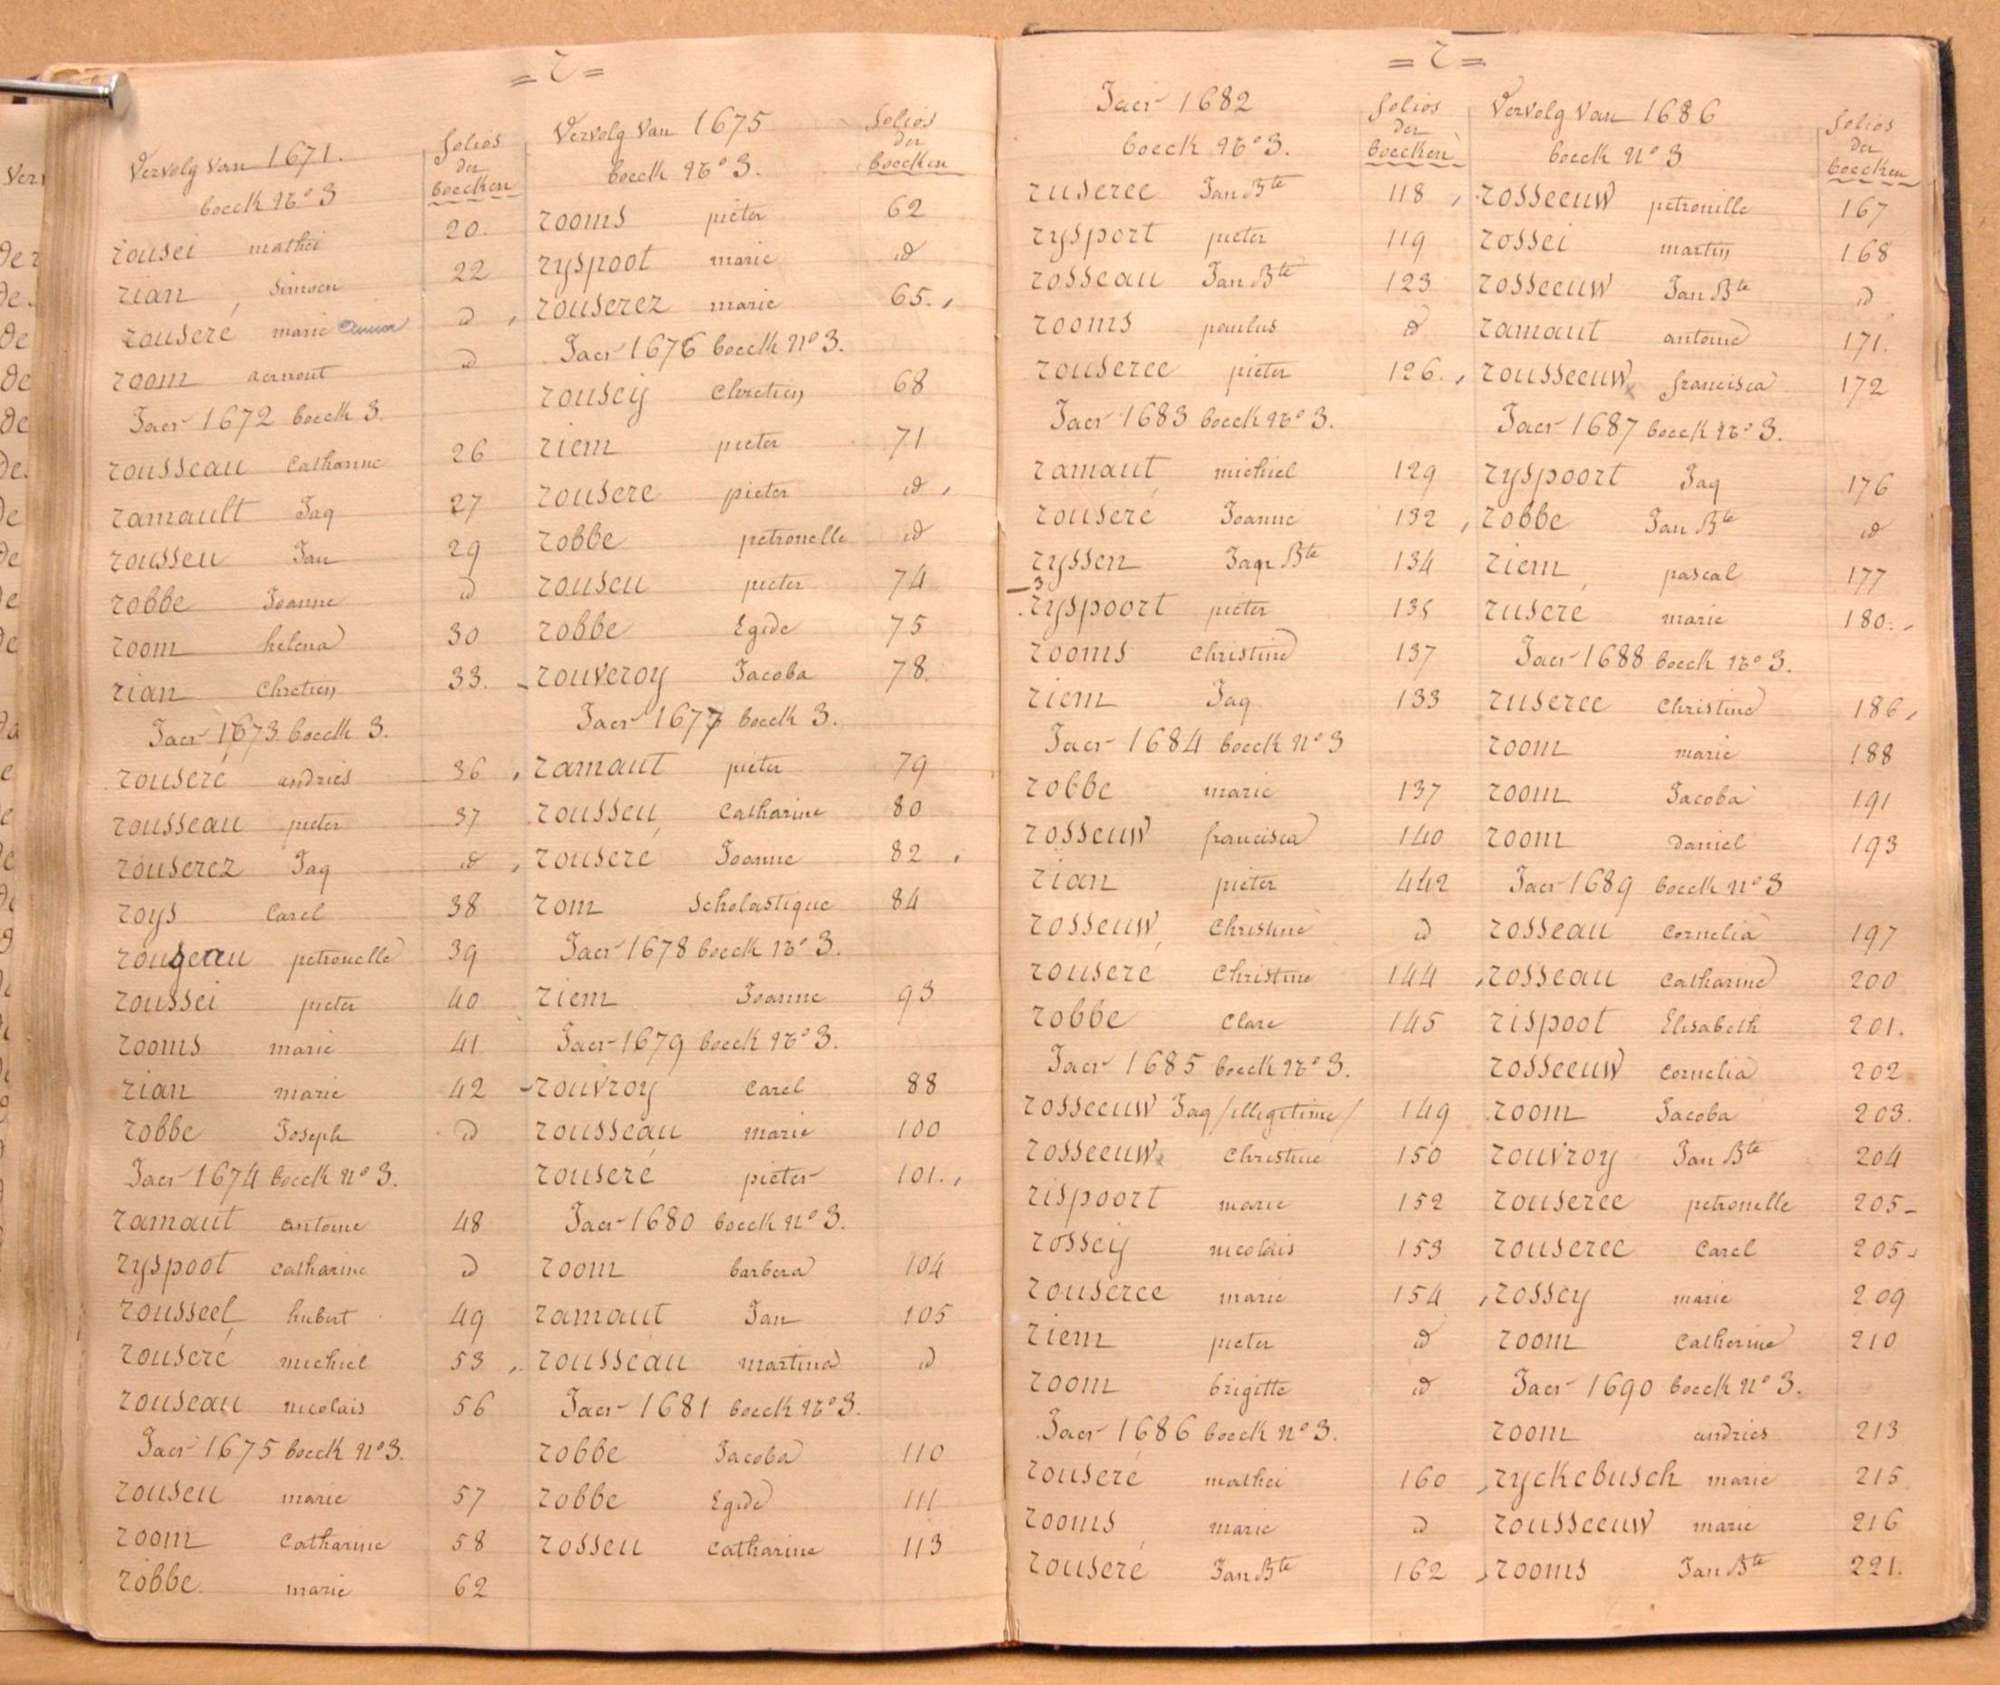 = r =
Vervolg Van 1671.
boeck No 3
folios
der
boecken
rousei mathei 20.
rian Simoen 22
rouseré marie anna id
room aernout id
Jaer 1672 boeck 3.
rousseau Catharine 26
ramault Jaq 27
rousseu Jan 29
robbe Joanne id
room helena 30
rian Chretien 33.
Jaer 1673 boeck 3.
rouseré andries 36
rousseau pieter 37
rouserez Jaq id
roys Carel 38
rouseau petronelle 39
roussei pieter 40
rooms marie 41
rian marie 42
robbe Joseph id
Jaer 1674 boeck No 3.
ramaut antoine 48
ryspoot Catharine id
rousseel hubert 49
rouseré michiel 53
rouseau nicolais 56
Jaer 1675 boeck No 3.
rouseu marie 57
room Catharine 58
robbe marie 62
Vervolg Van 1675
boeck No 3.
folios
der
boecken
rooms pieter 62
ryspoot marie id
rouserez marie 65.
Jaer 1676 boeck No 3.
rouseij Chretien 68
riem pieter 71
rouseré pieter id
robbe petronelle id
rouseu pieter 74
robbe Egide 75
rouveroy Jacoba 78.
Jaer 1677 boeck 3.
ramaut pieter 79
rousseu Catharine 80
rouseré Joanne 82
rom Scholastique 84
Jaer 1678 boeck No 3.
riem Joanne 93
Jaer 1679 boeck No 3.
rouvroy Carel 88
rousseau marie 100
rouseré pieter 101.
Jaer 1680 boeck No 3.
room barbera 104
ramaut Jan 105
rousseau martina id
Jaer 1681 boeck No 3.
robbe Jacoba 110
robbe Egide 111
rosseu Catharine 113
= r =
Jaer 1682
boeck No 3.
folios
der
boecken
ruseree Jan Bte 118
rysport pieter 119
rosseau Jan Bte 123
rooms paulus id
rouseree pieter 126.
Jaer 1683 boeck No 3.
ramaut michiel 129
rouseré Joanne 132
ryssen Jaqr Bte 134
3
ryspoort pieter 135
rooms Christine 137
riem Jaq 133
Jaer 1684 boeck No 3
robbe marie 137
rosseuw francisca 140
rian pieter 442
rosseuw Christine id
rouseré Christine 144
robbe Clare 145
Jaer 1685 boeck No 3.
rosseeuw Jaq /illegitime/ 149
rosseeuw Christine 150
rispoort marie 152
rosseij nicolais 153
rouseree marie 154
riem pieter id
room brigitte id
Jaer 1686 boeck No 3.
rouseré mathei 160
rooms marie id
rouseré Jan Bte 162
Vervolg Van 1686
boeck No 3
folios
der
boecken
rosseeuw petronille 167
rossei martin 168
rosseeuw Jan Bte id
ramaut antoine 171.
rousseeuw francisca 172
Jaer 1687 boeck No 3.
ryspoort Jaq 176
robbe Jan Bte id
riem pascal 177
ruseré marie 180.
Jaer 1688 boeck No 3.
ruseree Christine 186
room marie 188
room Jacoba 191
room Daniel 193
Jaer 1689 boeck No 3
rosseau Cornelia 197
rosseau Catharine 200
rispoot Elisabeth 201.
rosseeuw Cornelia 202
room Jacoba 203.
rouvroy Jan Bte 204
rouseree petronelle 205
rouseree Carel 205
rossey marie 209
room Catherine 210
Jaer 1690 boeck No 3.
room andries 213
ryckebusch marie 215
rousseeuw marie 216
rooms Jan Bte 221.